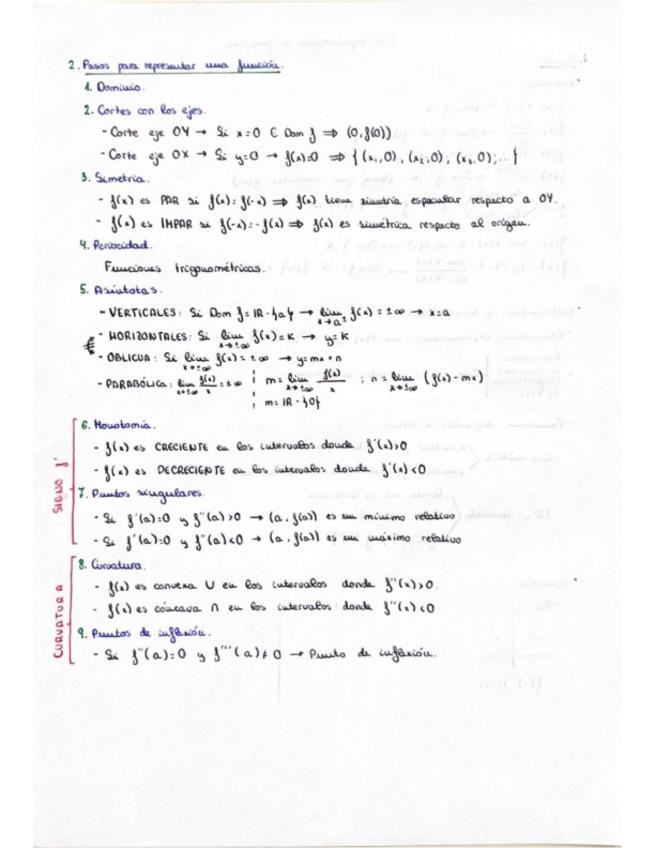 2. Pasos para representar una función.
1. Dominio.
2. Cortes con los ejes.
- Corte eje OY → Si x=0 ∈ Dom f ⇒ (0, f(0))
- Corte eje OX → Si y=0 → f(x)=0 ⇒ {(x₁,0), (x₂,0), (x₃,0);...}
3. Simetría.
- f(x) es PAR si f(x)=f(-x) ⇒ f(x) tiene simetría especular respecto a OY.
- f(x) es IMPAR si f(-x)=-f(x) ⇒ f(x) es simétrica respecto al origen.
4. Periocidad.
Funciones trigonométricas.
5. Asíntotas.
- VERTICALES: Si Dom f = IR - {a} → lim x→a± f(x) = ±∞ → x=a
- HORIZONTALES: Si lim x→±∞ f(x)=K → y=K
- OBLICUA: Si lim x→±∞ f(x) = ±∞ → y=mx+n
- PARABÓLICA: lim x→±∞ f(x)/x = ±∞ m = lim x→±∞ f(x)/x ; n = lim x→±∞ (f(x)-mx)
m = IR - {0}
SIGNO f'
6. Monotomía.
- f(x) es CRECIENTE en los intervalos donde f'(x)>0
- f(x) es DECRECIENTE en los intervalos donde f'(x)<0
7. Puntos singulares.
- Si f'(a)=0 y f''(a)>0 → (a, f(a)) es un mínimo relativo
- Si f'(a)=0 y f''(a)<0 → (a, f(a)) es un máximo relativo
CURVATURA
8. Curvatura.
- f(x) es convexa U en los intervalos donde f''(x)>0.
- f(x) es cóncava ∩ en los intervalos donde f''(x)<0
9. Puntos de inflexión.
- Si f''(a)=0 y f'''(a)≠0 → Punto de inflexión.